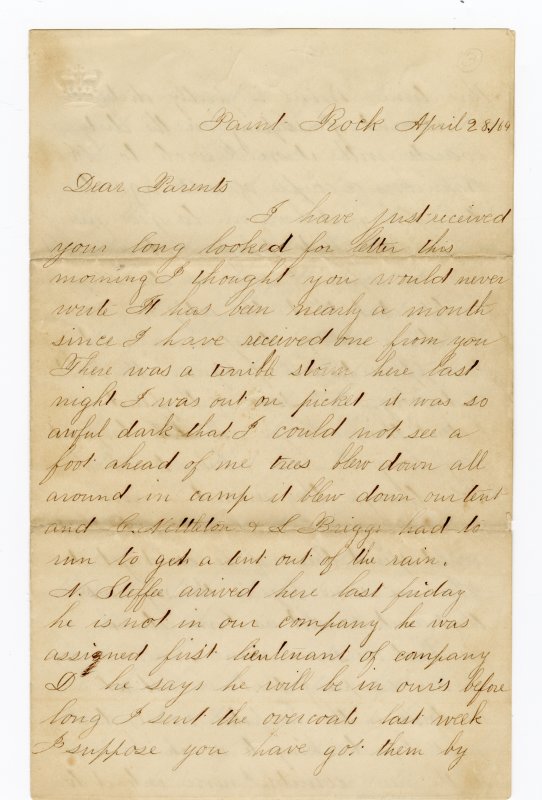 Paint Rock April 28/64
Dear Parents
I have just received
your long looked for letter this
morning I thought you would never
write It has been nearly a month
since I have received one from you
There was a terrible storm here last
night I was out on picket it was so
awful dark that I could not see a
foot ahead of me trees blew down all
around in camp it blew down our tent
and C. Nettleton & L Briggs had to
run to get a tent out of the rain.
N. Steffee arrived here last friday
he is not in our company he was
assigned first lieutenant of company
D he says he will be in our's before
long I sent the overcoats last week
I suppose you have got them by